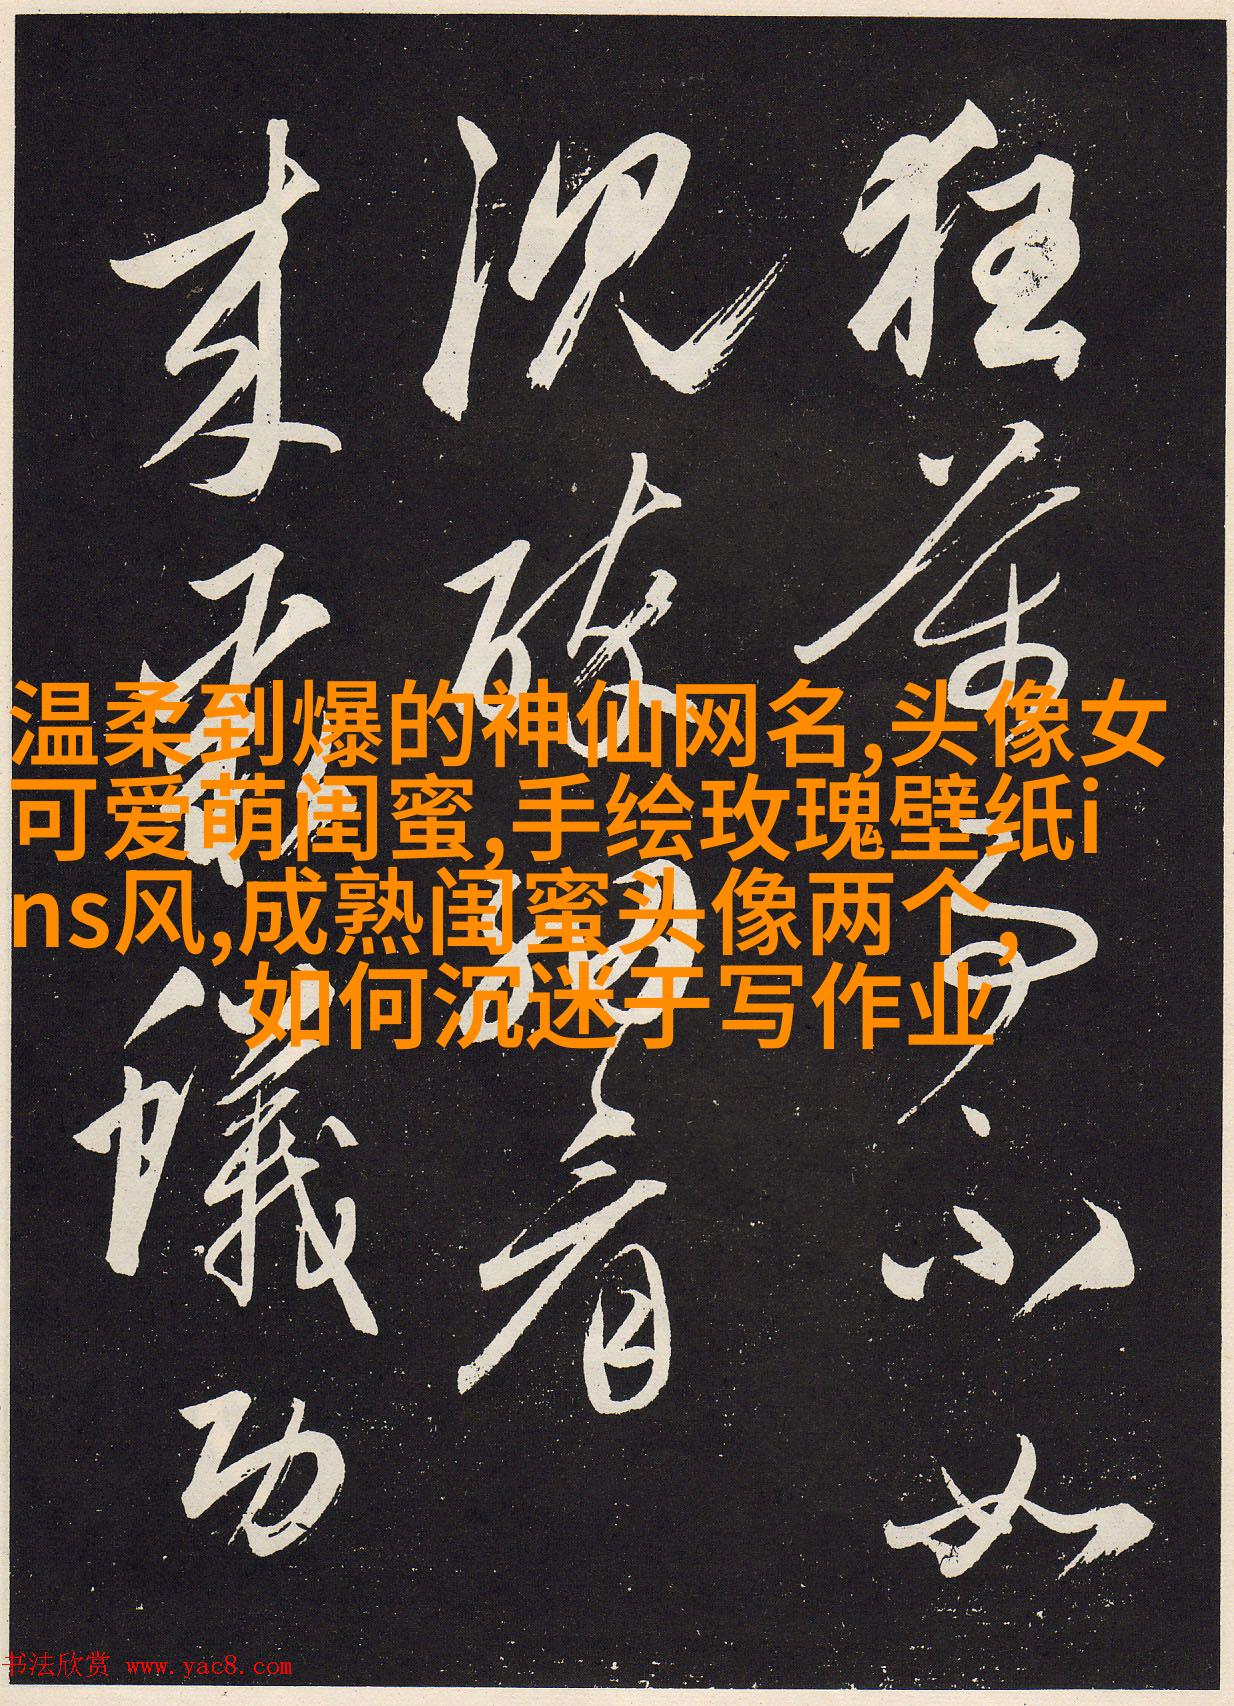 狂不如
者
来蟻功
温柔到爆的神仙网名,头像女
可爱萌闺蜜,手绘玫瑰壁纸i
ns风,成熟闺蜜头像两个,
如何沉迷于写作业
书法欣赏 www.yac8.com